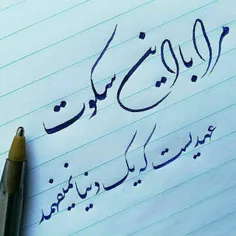 مرا با این سکوت
عهدیست که یک دنیا نمیفهمد